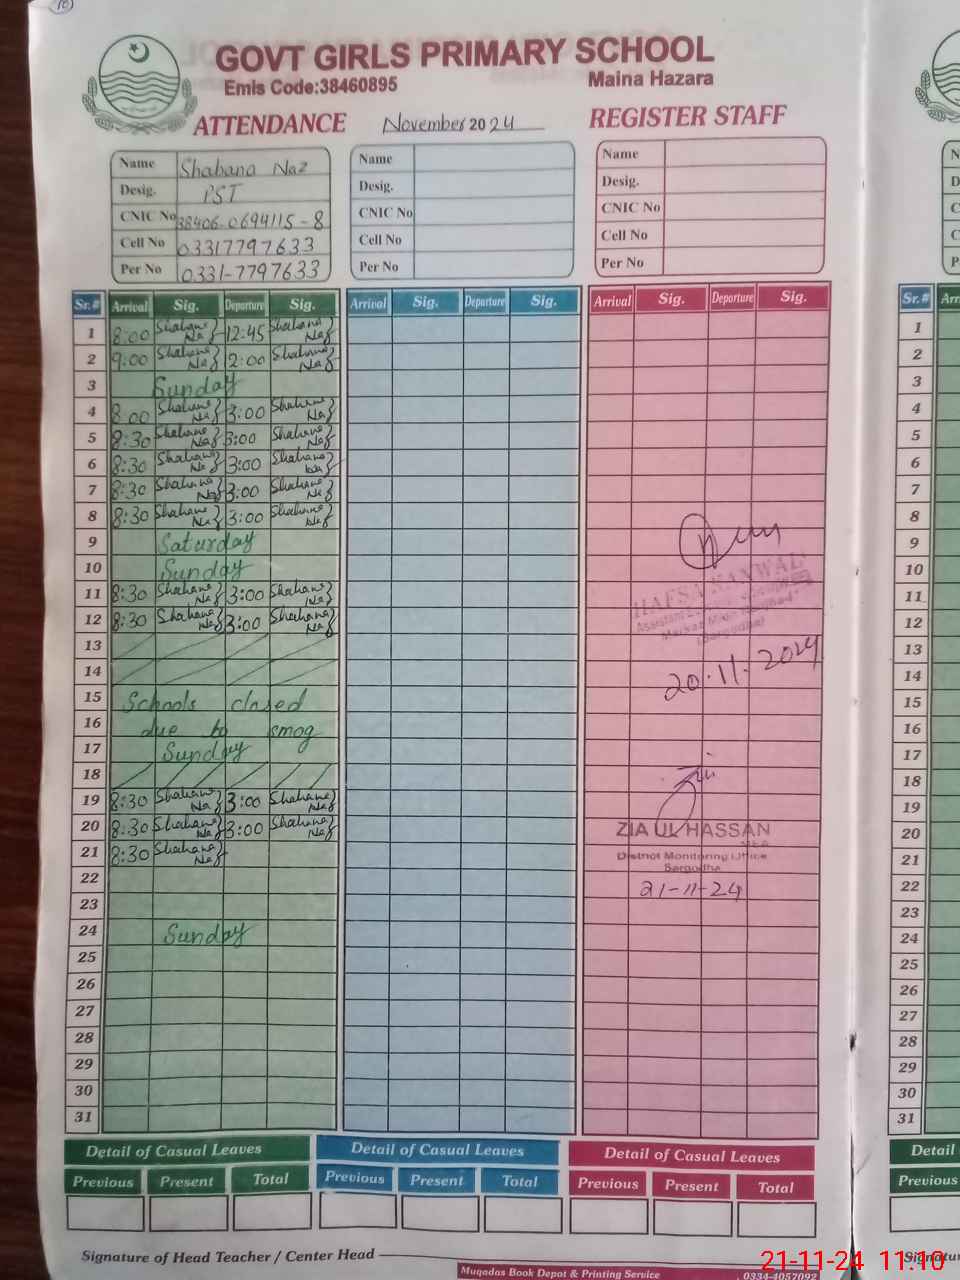 10
GOVT GIRLS PRIMARY SCHOOL
Emis Code:38460895 Maina Hazara
ATTENDANCE November 2024 REGISTER STAFF
Name Shabana Naz Name Name
Desig. PST Desig. Desig.
CNIC No 38406-0694115-8 CNIC No CNIC No
Cell No 03317797633 Cell No Cell No
Per No 0331-7797633 Per No Per No
Sr.# Arrival Sig. Departure Sig. Arrival Sig. Departure Sig. Arrival Sig. Departure Sig. Sr.#
1 8:00 Shabana Naz 12:45 Shabana Naz 1
2 9:00 Shabana Naz 2:00 Shabana Naz 2
3 Sunday 3
4 8:00 Shabana Naz 3:00 Shabana Naz 4
5 8:30 Shabana Naz 3:00 Shabana Naz 5
6 8:30 Shabana Naz 3:00 Shabana Naz 6
7 8:30 Shabana Naz 3:00 Shabana Naz 7
8 8:30 Shabana Naz 3:00 Shabana Naz 8
9 Saturday 9
10 Sunday 10
11 8:30 Shabana Naz 3:00 Shabana Naz HAFSA SANWAL 11
12 8:30 Shabana Naz 3:00 Shabana Naz 12
13 (Sargodha) 13
14 20.11.2024 14
15 Schools closed 15
16 due to smog 16
17 Sunday 17
18 18
19 8:30 Shabana Naz 3:00 Shabana Naz 19
20 8:30 Shabana Naz 3:00 Shabana Naz ZIA UL HASSAN 20
21 8:30 Shabana Naz District Monitoring Office 21
Sargodha
22 21-11-24 22
23 23
24 Sunday 24
25 25
26 26
27 27
28 28
29 29
30 30
31 31
Detail of Casual Leaves Detail of Casual Leaves Detail of Casual Leaves Detail
Previous Present Total Previous Present Total Previous Present Total Previous
Signature of Head Teacher / Center Head
Muqadas Book Depot & Printing Service 0334-4057092
21-11-24 11:10